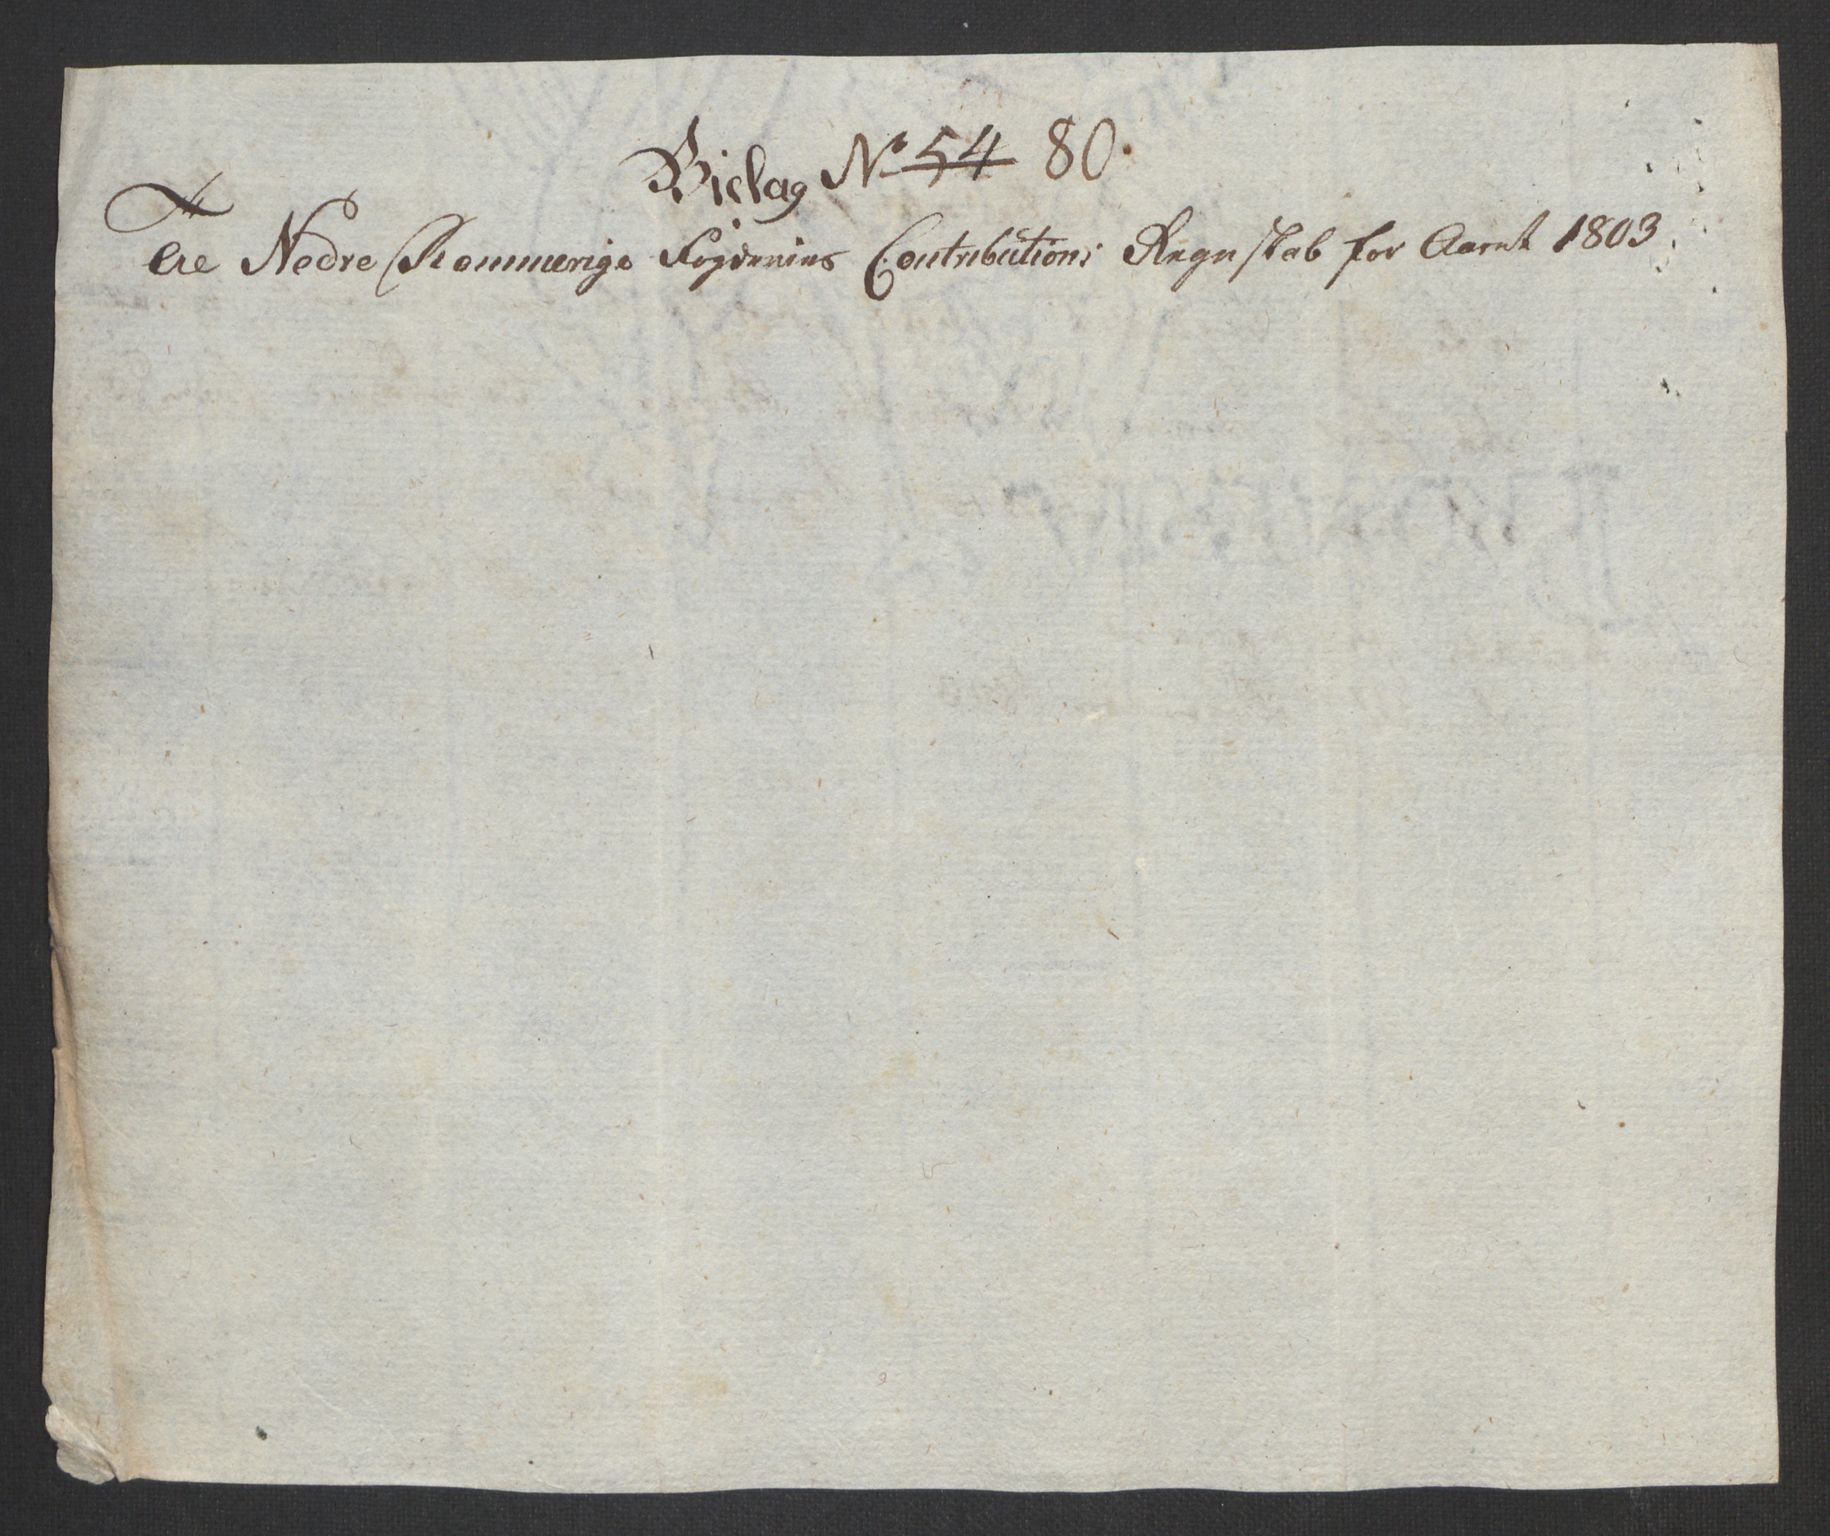 Bielag No 54 80.
til Nedre Rommerigs Fogderies Contributions Regnskab for Aaret 1803.